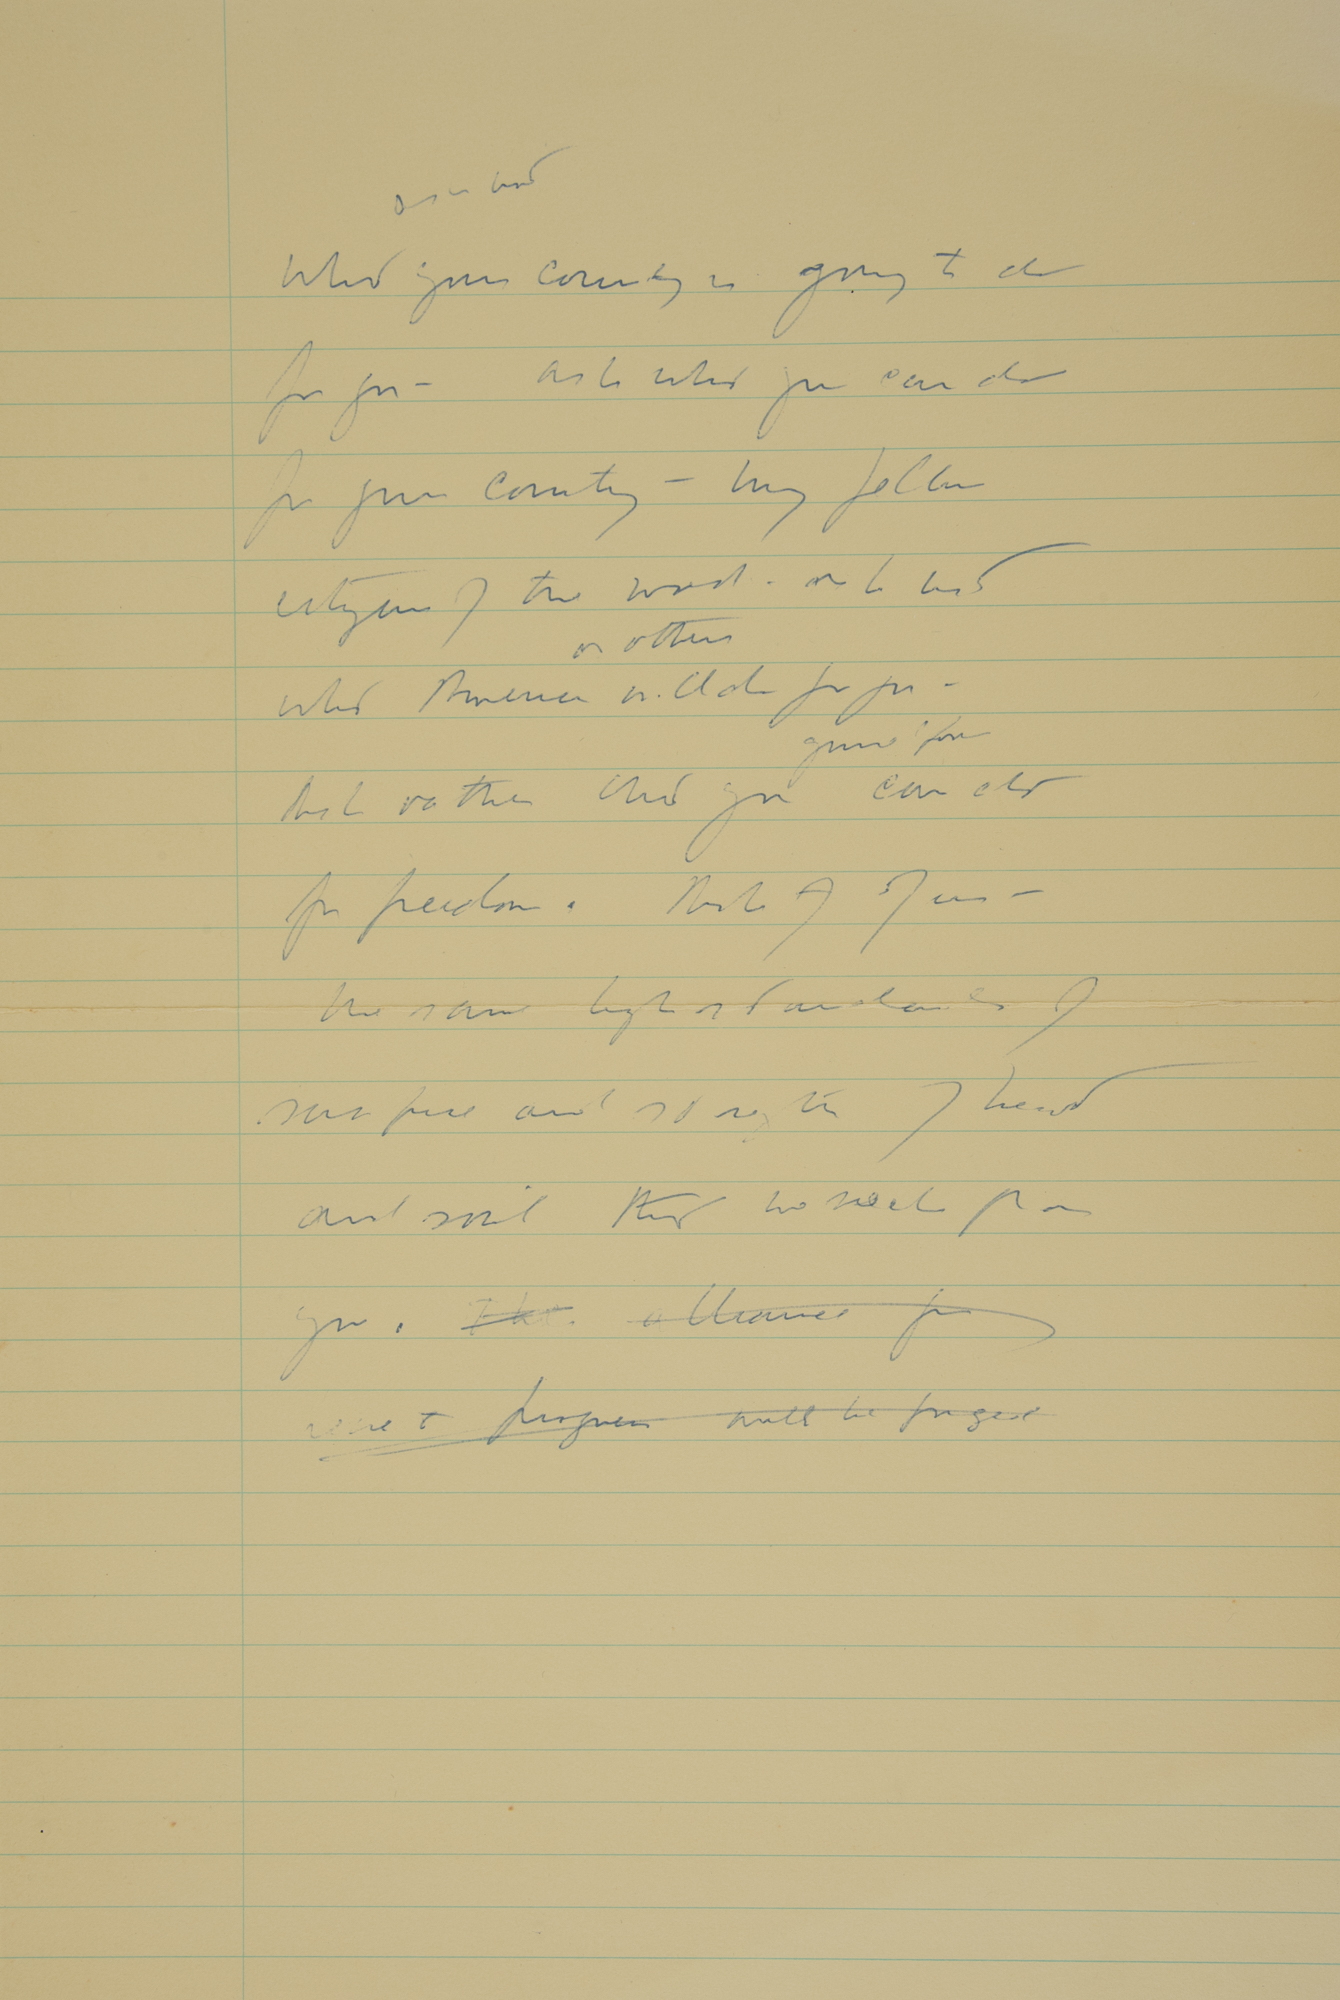 ask not
what your country is going to do
for you - ask what you can do
for your country - my fellow
citizens of the world - ask not
or others
what America will do for you -
Ask rather what you can do
for freedom. Ask of us -
the same high standards of
sacrifice and strength of heart
and will that we seek from
you. The alliance for
progress will be forged